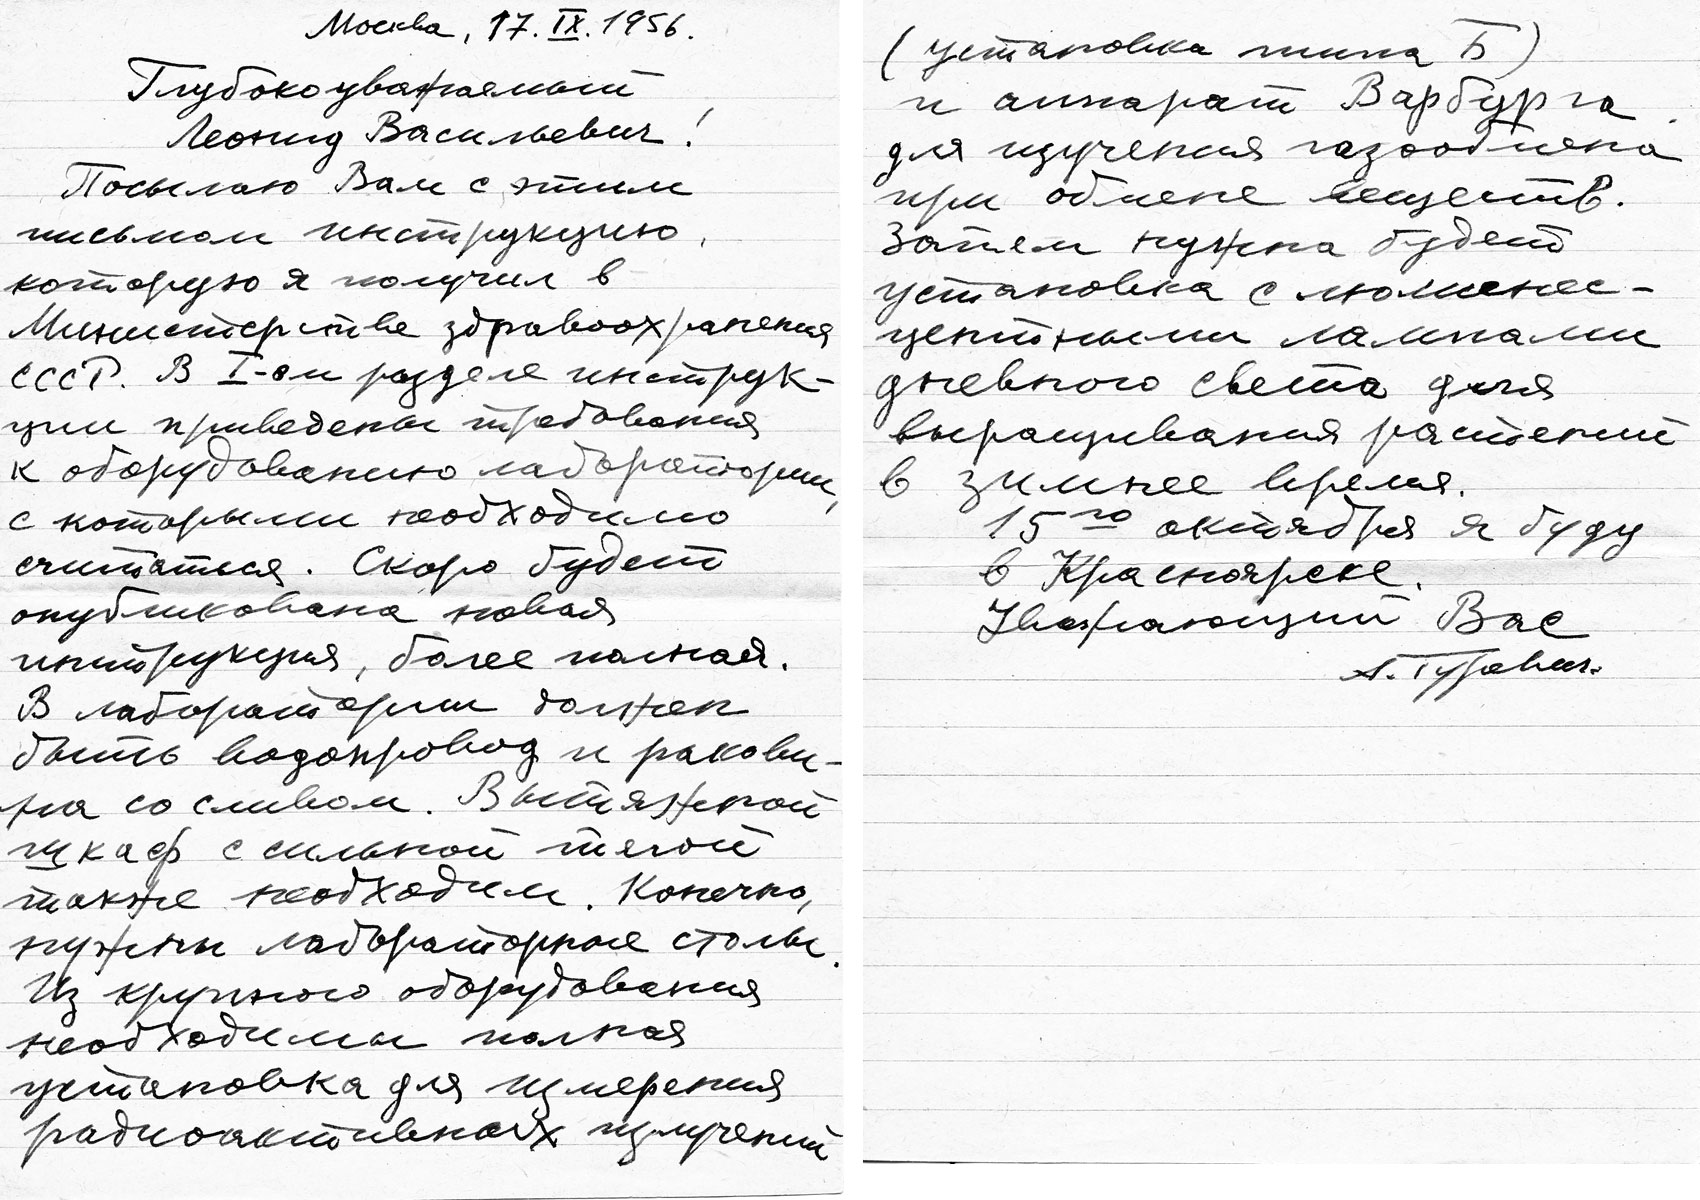 Москва, 17. IX. 1956.
Глубокоуважаемый
Леонид Васильевич!
Посылаю Вам с этим
письмом инструкцию,
которую я получил в
Министерстве здравоохранения
СССР. В I-ом разделе инструк-
ции приведены требования
к оборудованию лаборатории,
с которыми необходимо
считаться. Скоро будет
опубликована новая
инструкция, более полная.
В лаборатории должен
быть водопровод и ракови-
на со сливом. Вытяжной
шкаф с сильной тягой
также необходим. Конечно,
нужны лабораторные столы.
Из крупного оборудования
необходимы полная
установка для измерения
радиоактивных излучений
(установка типа Б)
и аппарат Варбурга
для изучения газообмена
при обмене веществ.
Затем нужна будет
установка с люминес-
центными лампами
дневного света для
выращивания растений
в зимнее время.
15го октября я буду
в Красноярске.
Уважающий Вас
А. Гурович.